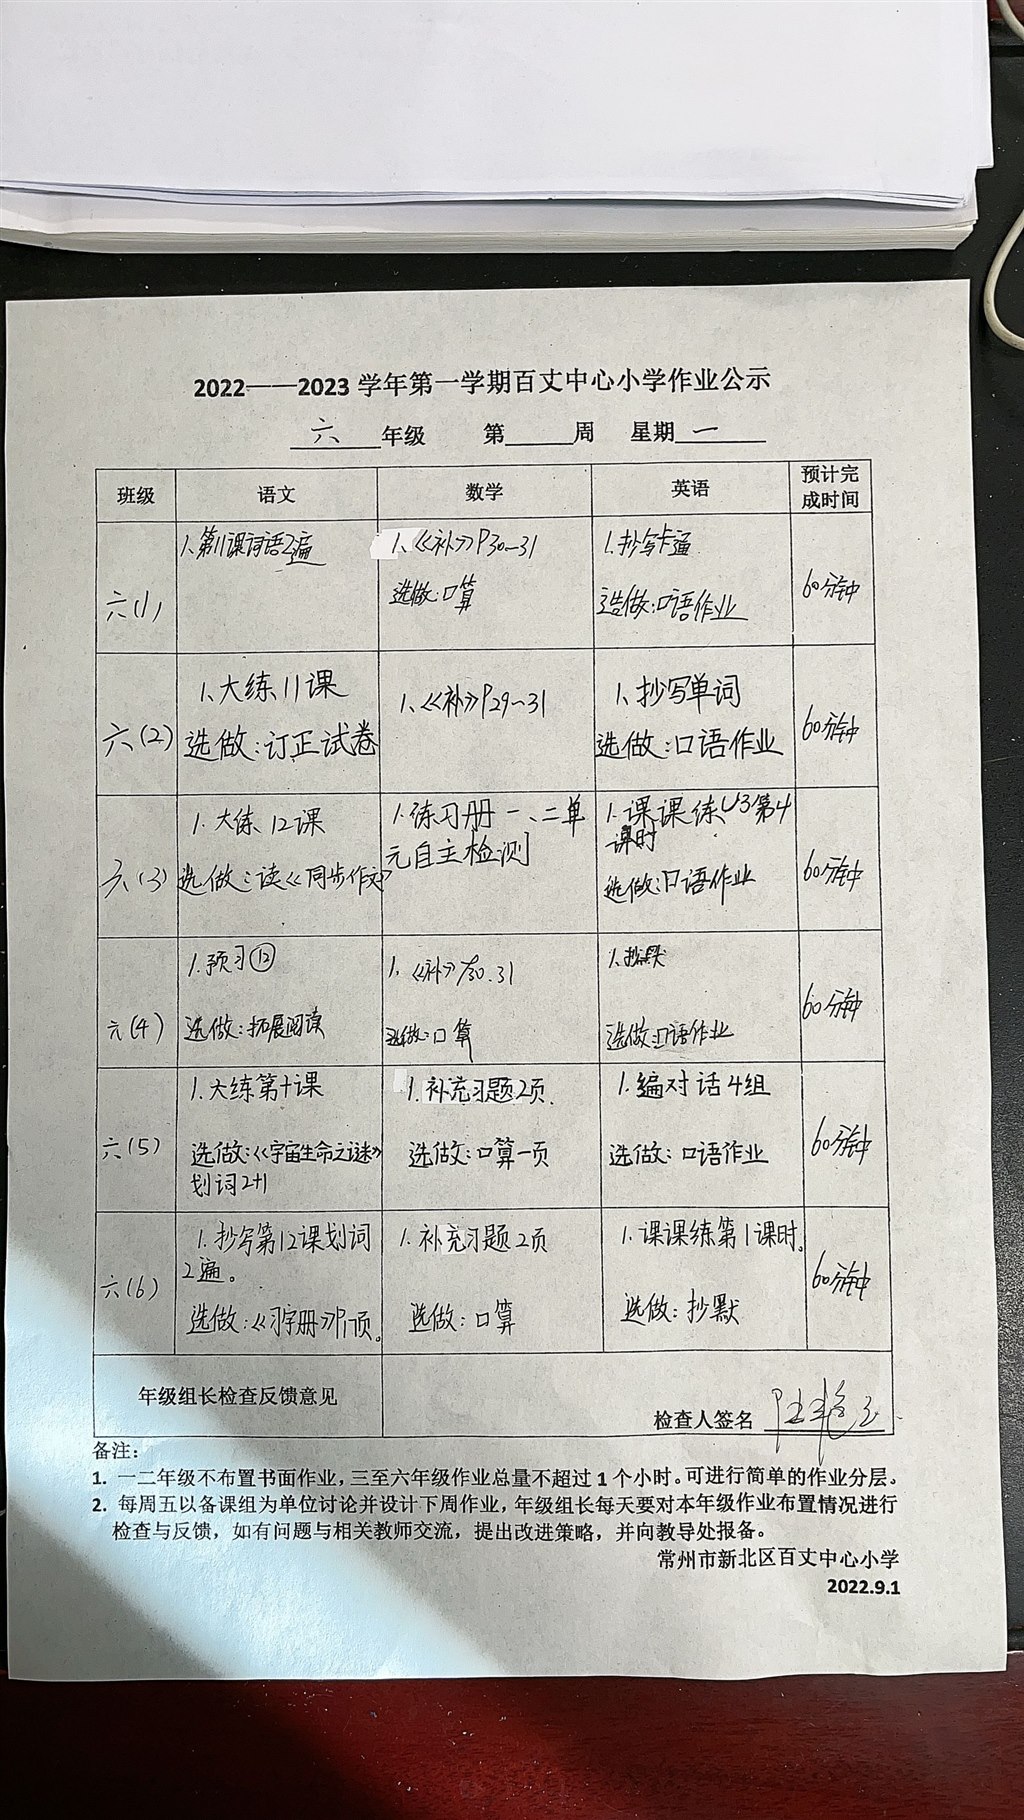 2022——2023 学年第一学期百丈中心小学作业公示
六 年级 第 周 星期 一
班级 语文 数学 英语 预计完成时间
六(1)
1、第11课词语2遍
1、《补》P30~31
选做:口算
1.抄写卡通
选做:口语作业
60分钟
六(2)
1、大练11课
选做:订正试卷
1、《补》P29~31
1、抄写单词
选做:口语作业
60分钟
六(3)
1.大练12课
选做:读《同步作文》
1.练习册一、二单
元自主检测
1.课课练U3第4
课时
选做:口语作业
60分钟
六(4)
1.预习⑫
选做:拓展阅读
1、《补》P30.31
选做:口算
1.抄默
选做:口语作业
60分钟
六(5)
1.大练第十课
选做:《宇宙生命之谜》
划词2+1
1.补充习题2页.
选做:口算一页
1.编对话4组
选做:口语作业
60分钟
六(6)
1.抄写第12课划词
2遍。
选做:《习字册》P17页。
1.补充习题2页
选做:口算
1.课课练第1课时。
选做:抄默
60分钟
年级组长检查反馈意见
检查人签名
备注:
1. 一二年级不布置书面作业,三至六年级作业总量不超过1个小时。可进行简单的作业分层。
2. 每周五以备课组为单位讨论并设计下周作业,年级组长每天要对本年级作业布置情况进行
检查与反馈,如有问题与相关教师交流,提出改进策略,并向教导处报备。
常州市新北区百丈中心小学
2022.9.1